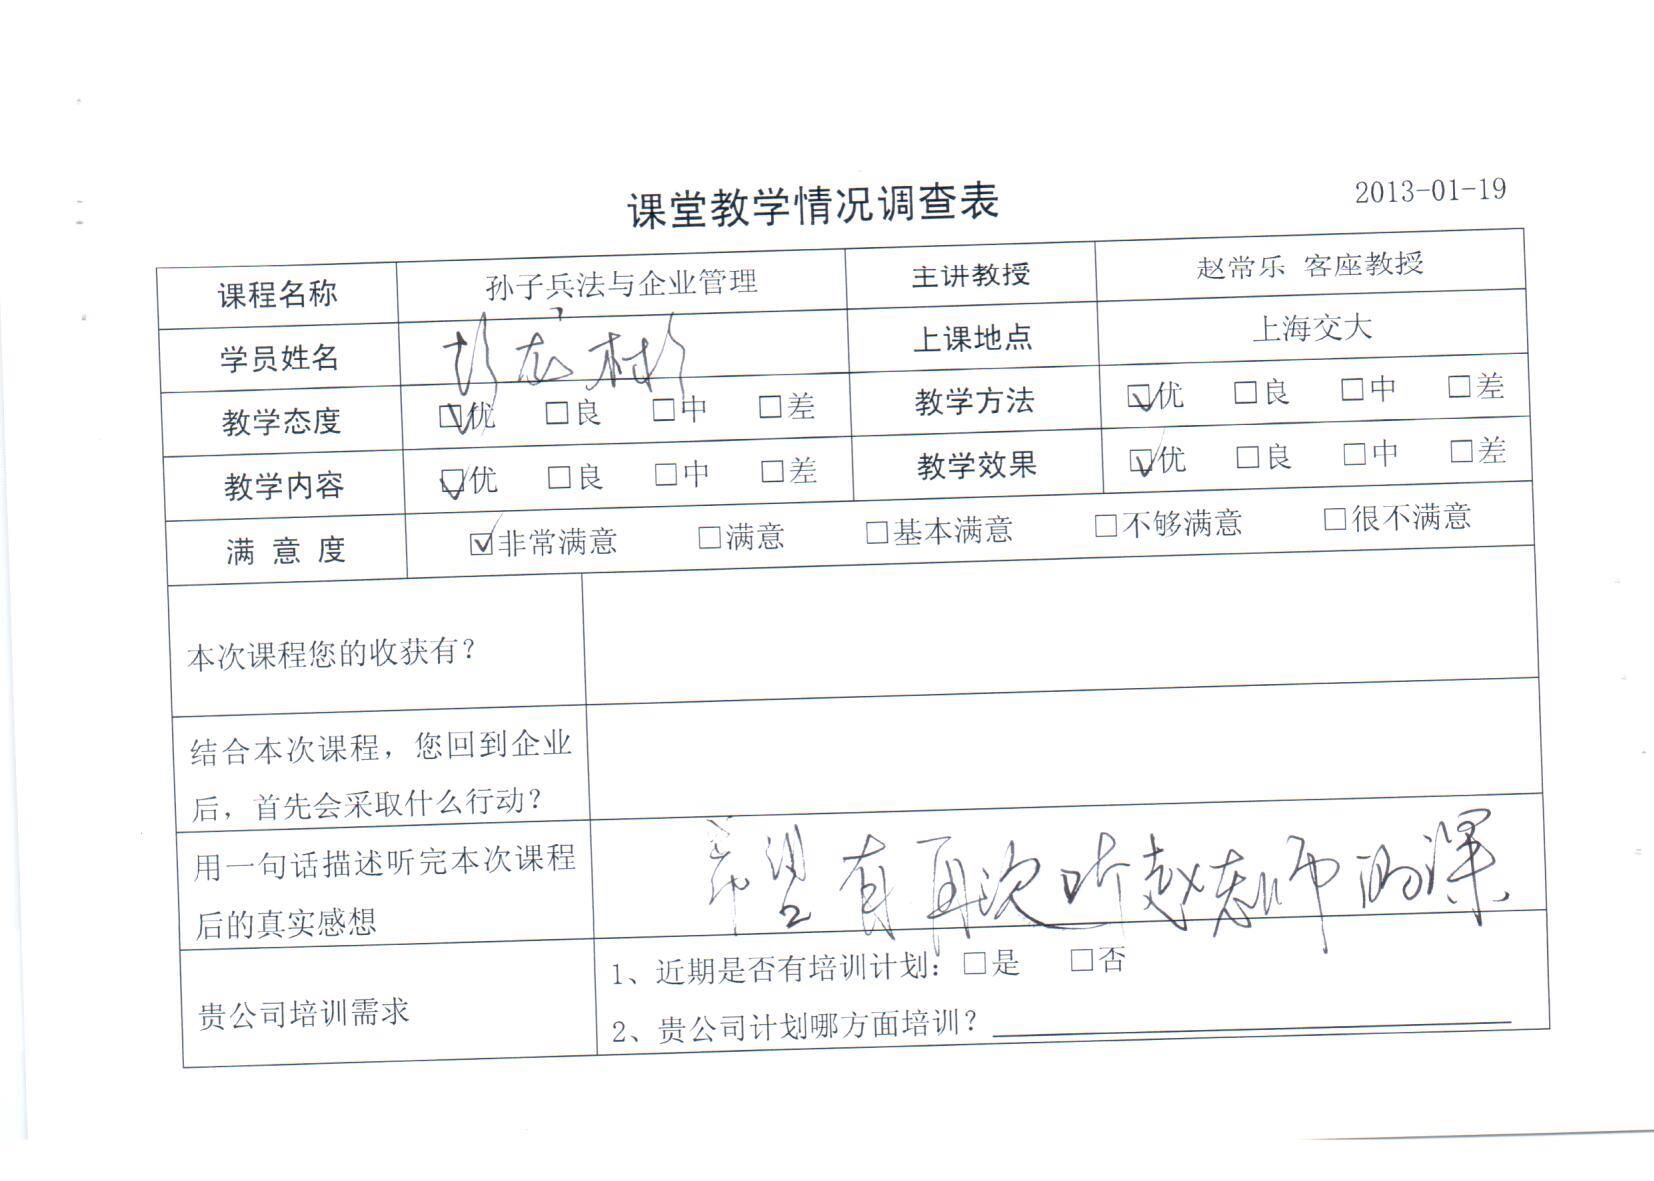 课堂教学情况调查表
2013-01-19
课程名称 孙子兵法与企业管理 主讲教授 赵常乐 客座教授
学员姓名 上课地点 上海交大
教学态度 ☑优 □良 □中 □差 教学方法 ☑优 □良 □中 □差
教学内容 ☑优 □良 □中 □差 教学效果 ☑优 □良 □中 □差
满 意 度 ☑非常满意 □满意 □基本满意 □不够满意 □很不满意
本次课程您的收获有？
结合本次课程，您回到企业
后，首先会采取什么行动？
用一句话描述听完本次课程
后的真实感想
希望有再次听赵老师的课.
贵公司培训需求
1、近期是否有培训计划：□是 □否
2、贵公司计划哪方面培训？